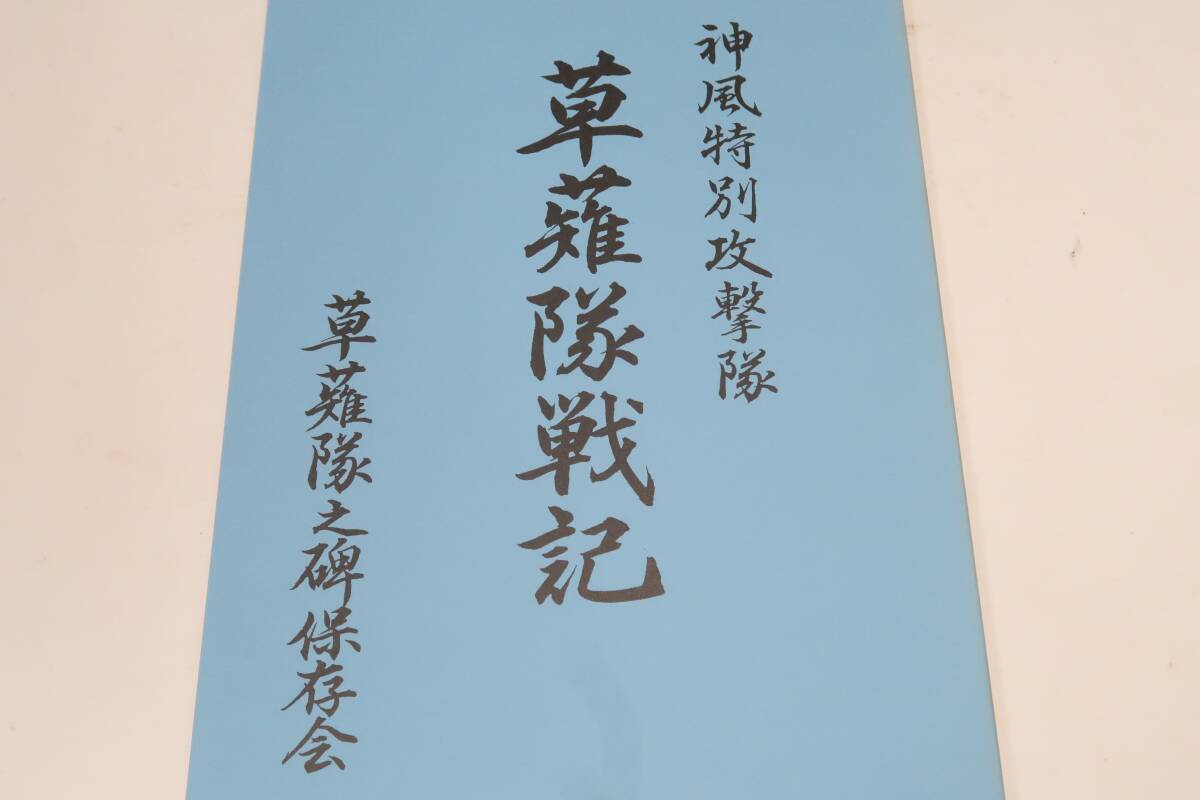 神風特別攻撃隊
草薙隊戦記
草薙隊之碑保存会